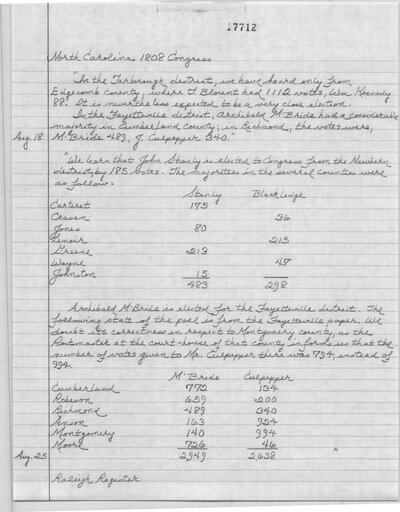 17712
North Carolina 1808 Congress
"In the Tarborough district, we have heard only from
Edgecomb County, where T. Blount had 1112 votes, Wm. Kennedy
88. It is nevertheless expected to be a very close election.
In the Fayetteville district, Archibald McBride had a considerable
majority in Cumberland County; in Richmond, the votes were,
Aug. 18 McBride 489, J. Culpepper 340."
"We learn that John Stanly is elected to Congress from the Newbern
district, by 185 votes. The majorities in the several counties were
as follow:
Stanly Blackledge
Carteret 175
Craven 36
Jones 80
Lenoir 215
Greene 213
Wayne 47
Johnston 15
483 298
Archibald McBride is elected for the Fayetteville district. The
following state of the poll is from the Fayetteville paper. We
doubt its correctness in respect to Montgomery county, as the
Postmaster at the court-house of that county informs us that the
number of votes given to Mr. Culpepper there was 794, instead of
994.
McBride Culpepper
Cumberland 772 134
Robeson 659 200
Richmond 489 340
Anson 163 924
Montgomery 140 994
Moore 726 46
Aug. 25 2949 2,638 "
Raleigh Register